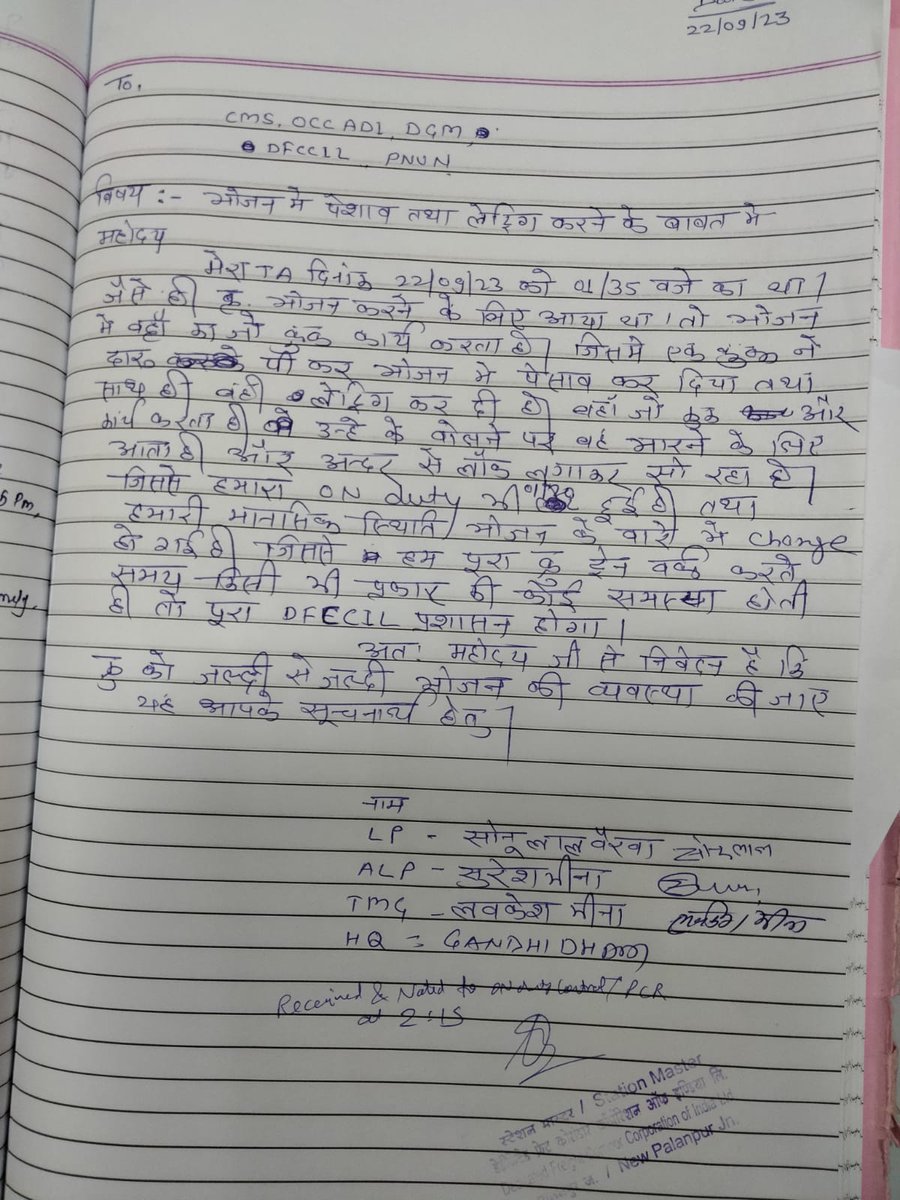 22/09/23
To,
CMS, OCC ADI, DGM,
DFCCIL, PNUN
विषय :- भोजन मे पेशाव तथा लेट्रिग करने के बाबत मे
महोदय
मेरा TA दिनांक 22/09/23 को 01/35 वजे का था।
जैसे ही क्रू भोजन करने के लिए आया था। तो भोजन
मे वहाँ का जो कुक कार्य करता है। जिसमे एक कुक ने
दारू पी कर भोजन मे पेसाव कर दिया तथा
साथ ही वंही लेट्रिग कर दी है। वहाँ जो कुक और
कार्य करता है उन्हे के वोलने पर वह मारने के लिए
आता है। और अन्दर से लॉक लगाकर सो रहा है।
जिससे हमारा ON duty भी हुई है तथा
हमारी मानसिक स्थिति भोजन के वारे में change
हो गई है। जिससे हम पूरा क्रू ट्रेन वर्क करते
समय किसी भी प्रकार की कोई समस्या होती
है तो पूरा DFECIL प्रशासन होगा।
अतः महोदय जी से निवेदन है कि
क्रु को जल्दी से जल्दी भोजन की व्यवस्था की जाए
यह आपके सूचनार्थ हेतु।
नाम
LP - सोनू लाल वैरवा सोनूलाल
ALP - सुरेश मीना
TMG - लवकेश मीना
HQ = GANDHIDHAM
Received & Noted to on duty control / PCR
at 2:15
स्टेशन मास्टर / Station Master
डेडीकेटेड फ्रेट कोरीडोर कॉर्पोरेशन ऑफ इण्डिया लि.
Dedicated Freight Corridor Corporation of India Ltd
/ New Palanpur Jn.